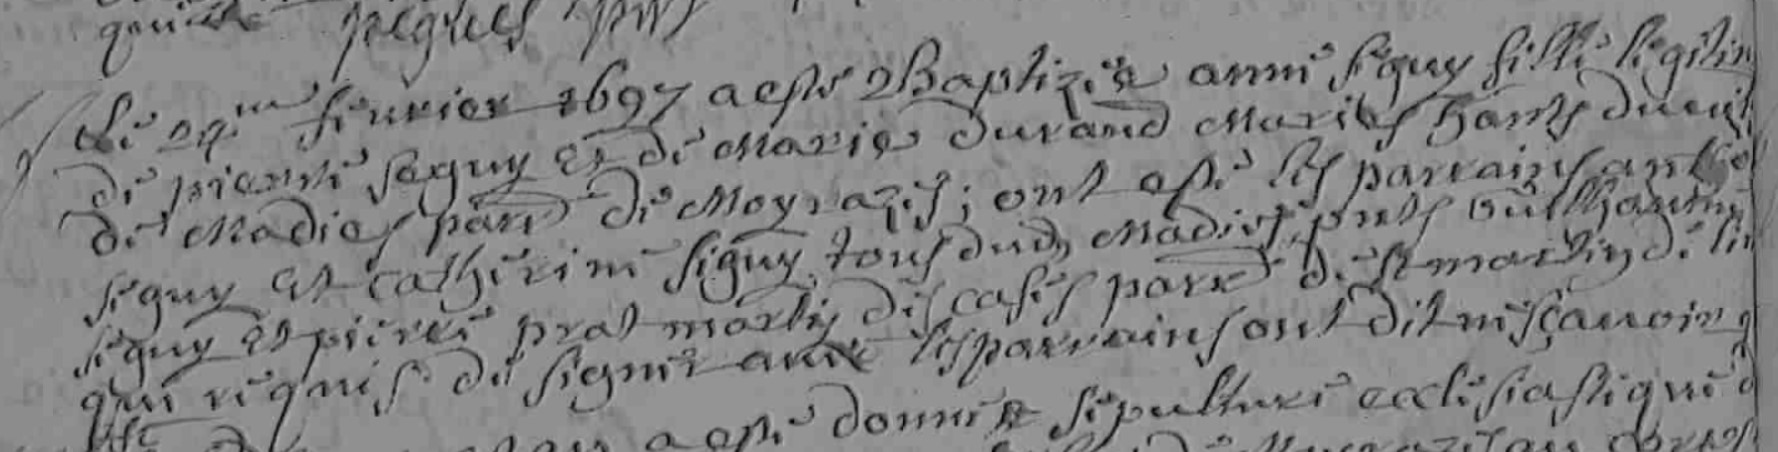 pegues pnt
Le 24me feuvrier 1697 a esté Baptizée anne seguy fille legitim
de pierre seguy et de Marie durand Mariés hants du vil
de Madies parr de Moyrazes; ont esté les parrains anth
seguy et catherine seguy tous dud Madies pnts
seguy et pierre prat mariés des cases parr de st martin de
qui requis de signer avec les parrains ont dit ne sçavoir
a esté donnée sepulture ecclesiastique